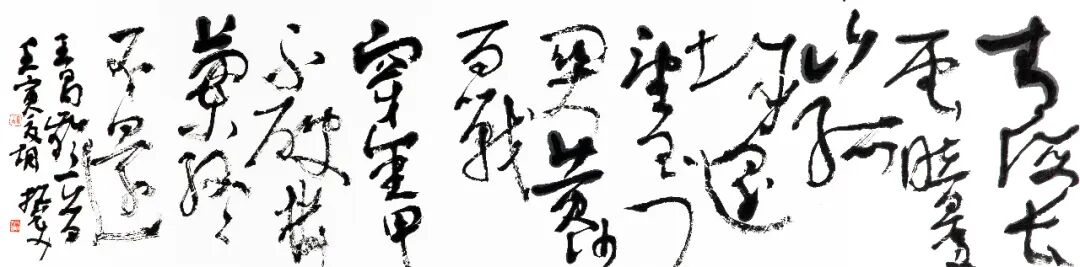 青海长
雲暗雪
山孤
城遥
望玉门
関黄沙
百戰
穿金甲
不破楼
蘭終
不還
王昌齡一首
壬寅夏胡